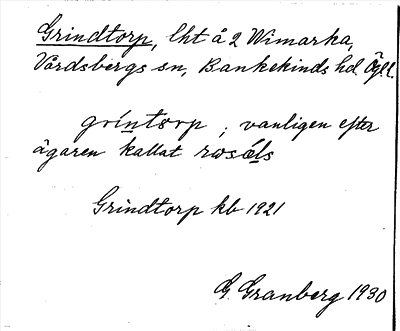 Grindtorp, lht å 2 Wimarka,
Vårdsbergs sn, Bankekinds hd. Ögl.
grintorp ; vanligen efter
ägaren kallat roséls
Grindtorp kb 1921
G. Granberg 1930